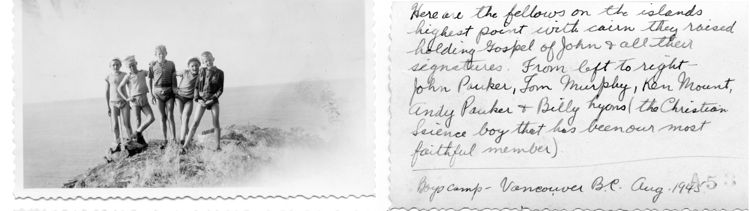 Here are the fellows on the islands
highest point with cairn they raised
holding Gospel of John & all their
signatures. From left to right-
John Pauker, Tom Murphy, Ken Mount,
Andy Pauker & Billy Lyons (the Christian
Science boy that has been our most
faithful member).
Boys camp - Vancouver B.C. Aug. 1945